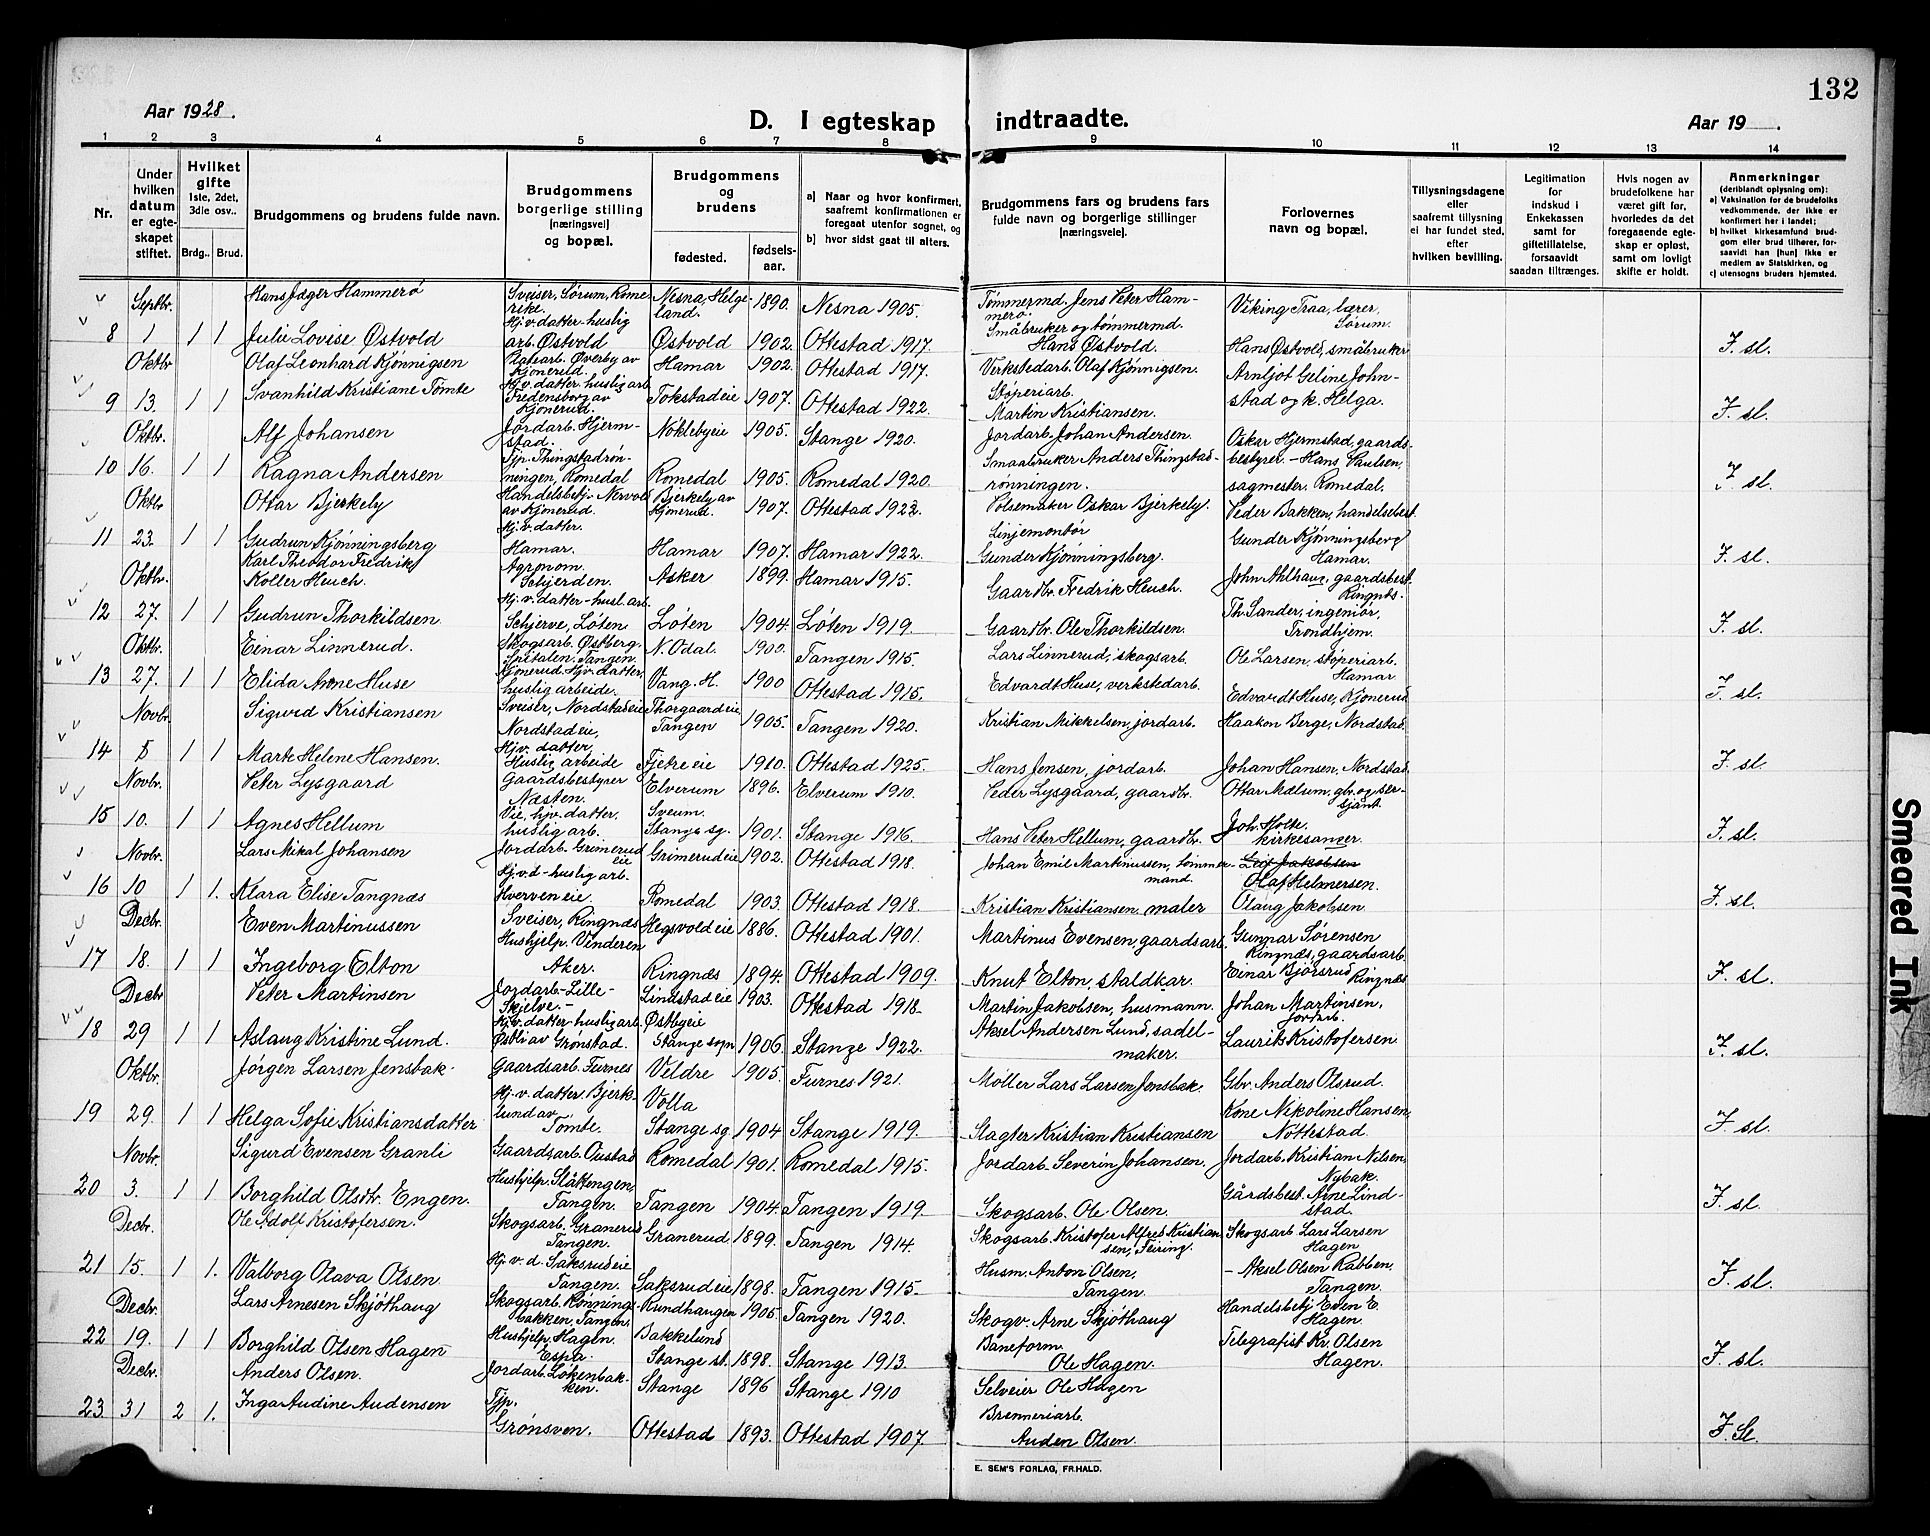 132
Aar 1928.
D. I egteskap indtraadte.
Aar 19 .
1 2 3 4 5 6 7 8 9 10 11 12 13 14
Nr.
Under hvilken datum er egteskapet stiftet.
Hvilket gifte 1ste, 2det, 3die osv..
Brdg.. Brud.
Brudgommens og brudens fulde navn.
Brudgommens borgerlige stilling (næringsvei) og bopæl.
Brudgommens og brudens
fødested. fødsels-aar.
a) Naar og hvor konfirmert, saafremt konfirmationen er foregaat utenfor sognet, og
b) hvor sidst gaat til alters.
Brudgommens fars og brudens fars fulde navn og borgerlige stillinger (næringsveie).
Forlovernes navn og bopæl.
Tillysningsdagene eller saafremt tillysning ei har fundet sted, efter hvilken bevilling.
Legitimation for indskud i Enkekassen samt for giftetillatelse, forsaavidt saadan tiltrænges.
Hvis nogen av brudefolkene har været gift før, hvorledes da det foregaaende egteskap er opløst, samt om lovligt skifte er holdt.
Anmerkninger (deriblandt oplysning om):
a) Vaksination for de brudefolks vedkommende, der ikke er konfirmert her i landet;
b) hvilket kirkesamfund brudgom eller brud tilhører, forsaavidt han (hun) ikke er medlem av Statskirken, og
c) utensogns bruders hjemsted.
Septbr. Hans Jæger Hammerø Sveiser, Sørum, Romerike. Nesna, Helgeland. 1890. Nesna 1905. Tømmermd. Jens Peter Hammerø. Viking Traa, lærer, Sørum.
8 1 1 1 Julie Lovise Østvold Hj. v. datter-huslig arb. Østvold Østvold 1902. Ottestad 1917. Småbruker og tømmermd. Hans Østvold. Hans Østvold, småbruker F. sl.
Oktbr Olaf Leonhard Kjønnigsen Øverby av Kjonerud. Hamar 1902. Ottestad 1917. Verkstedarb. Olaf Kjønnigsen. Arnljot Geline Johnstad og k. Helga.
9 13. 1 1 Svanhild Kristiane Tømte Hj. v. datter huslig arb Fredensborg av Kjonerud. Tokstadeie 1907. Ottestad 1922. Støperiarb. Martin Kristiansen. F. sl.
Oktbr. Alf Johansen Jordarb. Hjermstad. Nøklebyeie 1905. Stange 1920. Jordarb. Johan Andersen. Oskar Hjermstad, gaardsbestyrer. -
10 16. 1 1 Ragna Andersen Tjp. Thingstadrønningen, Romedal Romedal 1905. Romedal 1920. Smaabruker Anders Thingstadrønningen. Hans Paulsen, sagmester, Romedal. F. sl.
Oktbr Ottar Bjerkely Handelsbetj. av Kjonerud. Bjerkely av Kjonerud. 1907. Ottestad 1922. Pølsemaker Oskar Bjerkely. Peder Bakken, handelsbest.
11 23. 1 1 Gudrun Kjønningsberg Hj. v. datter. Hamar. Hamar 1907. Hamar 1922. Linjemontør Gunder Kjønningsberg. Gunder Kjønningsberg Hamar. F. sl.
Oktbr. Karl Theodor Fredrik Koller Heuch. Agronom. Schjerden. Asker 1899. Hamar 1915. Gaardbr. Fredrik Heuch. John Ahlhaug, gaardsbest. Ringnes.
12 27. 1 1 Gudrun Thorkildsen Hj. v. datter-husl. arb. Schjerve, Løten Løten 1904. Løten 1919. Gaardbr. Ole Thorkildsen. Th. Sander, ingeniør, Trondhjem. F. sl.
Oktbr. Einar Linnerud. Skogsarb. Østberg Spitalen. Tangen. N. Odal. 1900. Tangen 1915. Lars Linnerud, skogsarb. Ole Larsen, støperiarb. Hamar.
13 27. 1 1 Elida Anne Huse Kjonerud. Hjv. datter, huslig arbeide. Vang. H. 1900 Ottestad 1915. Edvardt Huse, verkstedarb. Edvardt Huse, Kjonerud F. sl.
Novbr. Sigurd Kristiansen Sveiser, Nordstadeie Thorgaardeie Tangen 1905. Tangen 1920. Kristian Mikkelsen, jordarb. Haakon Berge, Nordstad.
14 5 1 1 Marte Helene Hansen. Nordstadeie, Hj. v. datter, Huslig arbeide Fjetre eie 1910. Ottestad 1925. Hans Jensen, jordarb. Johan Hansen, Nordstad. F. sl.
Novbr. Peter Lysgaard Gaardsbestyrer Næsten. Elverum 1896. Elverum 1910. Peder Lysgaard, gaardbr. Ottar Mælum, gbr. og sersjant.
15 10. 1 1 Agnes Hellum Vie, hjv. datter, huslig arb. Sveum. Stange sg. 1901. Stange 1916. Hans Peter Hellum, gaardbr. Joh. Holte, kirkesanger. F. sl.
Novbr. Lars Mikal Johansen Jordarb. Grimerud eie Grimerudeie 1902. Ottestad 1918. Johan Emil Martinussen, tømmermand. Leif Jakobsen Olaf Helmersen.
16 10 1 1. Klara Elise Tangnæs Hj. v. d-huslig arb. Kverven eie Romedal 1903. Ottestad 1918. Kristian Kristiansen maler Olaug Jakobsen F. sl.
Decbr. Even Martinussen Sveiser, Ringnæs Hegsvoldeie 1886. Ottestad 1901. Martinus Evensen, gaardsarb. Gunnar Sørensen Ringnæs, gaardsarb.
17 18. 1 1 Ingeborg Elton Hushjelp. Vinderen Aker. Ringnæs 1894. Ottestad 1909. Knut Elton, staldkar. Einar Bjørsrud Ringnæs F. sl.
Decbr Peter Martinsen Jordarb-Lille-Skjelve- Lindstadeie 1903. Ottestad 1918. Martin Jakobsen, husmann. Johan Martinsen, jordarb.
18 29 1 1 Aslaug Kristine Lund. Hj. v. datter huslig arb Østli av Grønstad. Østbyeie Stange sogn 1906. Stange 1922. Aksel Andersen Lund, sadelmaker. Laurits Kristofersen. F. sl.
Oktbr. Jørgen Larsen Jensbak. Gaardsarb. Furnes Veldre 1905. Furnes 1921. Møller Lars Larsen Jensbak Gbr. Anders Olsrud.
19 29. 1 1 Helga Sofie Kristiansdatter Hj. v. datter. Bjerklund av Tømte. Volla Stange sg. 1904 Stange 1919. Slagter Kristian Kristiansen Kone Nikoline Hansen, Nøttestad. F. sl.
Novbr. Sigurd Evensen Granli Gaardsarb. Oustad Romedal 1901. Romedal 1915. Jordarb. Severin Johansen. Jordarb. Kristian Nilsen, Nybak.
20 3. 1 1 Borghild Olsdtr. Engen. Hushjelp. Slåttengen, Tangen. Tangen 1904. Tangen 1919. Skogsarb. Ole Olsen. Gårdsbest. Arne Lindstad. F. sl.
Decbr. Ole Adolf Kristofersen. Skogsarb. Granerud Tangen. Granerud 1899. Tangen 1914. Skogsarb. Kristofer Alfred Kristiansen, Feiring. Skogsarb Lars Larsen Hagen
21 15. 1 1. Valborg Olava Olsen Hj. v. d. Saksrudeie Tangen. Saksrudeie 1898. Tangen 1915. Husm. Anton Olsen, Tangen. - Aksel Olsen Rabben. Tangen. F. sl.
Decbr. Lars Arnesen Skjøthaug Skogsarb. Rønningsbakken, Tangen, Rundhaugen 1905. Tangen 1920. Skogv. Arne Skjøthaug Handelsbetj Even E. Hagen.
22 19. 1 1 Borghild Olsen Hagen Hushjelp. Hagen. Espa. Bakkelund Stange st. 1898. Stange 1913. Baneform. Ole Hagen. Telegrafist Kr. Olsen Hagen. F. sl.
Decbr. Anders Olsen. Jordarb. Løkenbakken. Stange 1896 Stange 1910 Selveier Ole Hagen
23. 31 2 1. Inga Audine Audensen Tjp. Grønsven. Ottestad 1893. Ottestad 1907. Brenneriarb. Auden Olsen. F. Sl.
E. SEM'S FORLAG, FR.HALD.
Smeared Ink